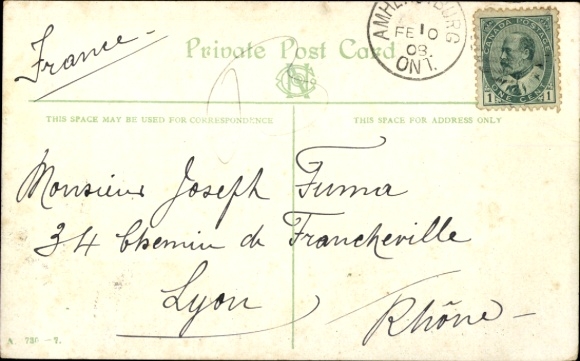 France
Private Post Card
AMHERSTBURG
FE 10
08
ONT.
CANADA POSTAGE
1 ONE CENT 1
THIS SPACE MAY BE USED FOR CORRESPONDENCE
THIS SPACE FOR ADDRESS ONLY
Monsieur Joseph Fuma
34 Chemin de Francheville
Lyon
Rhône